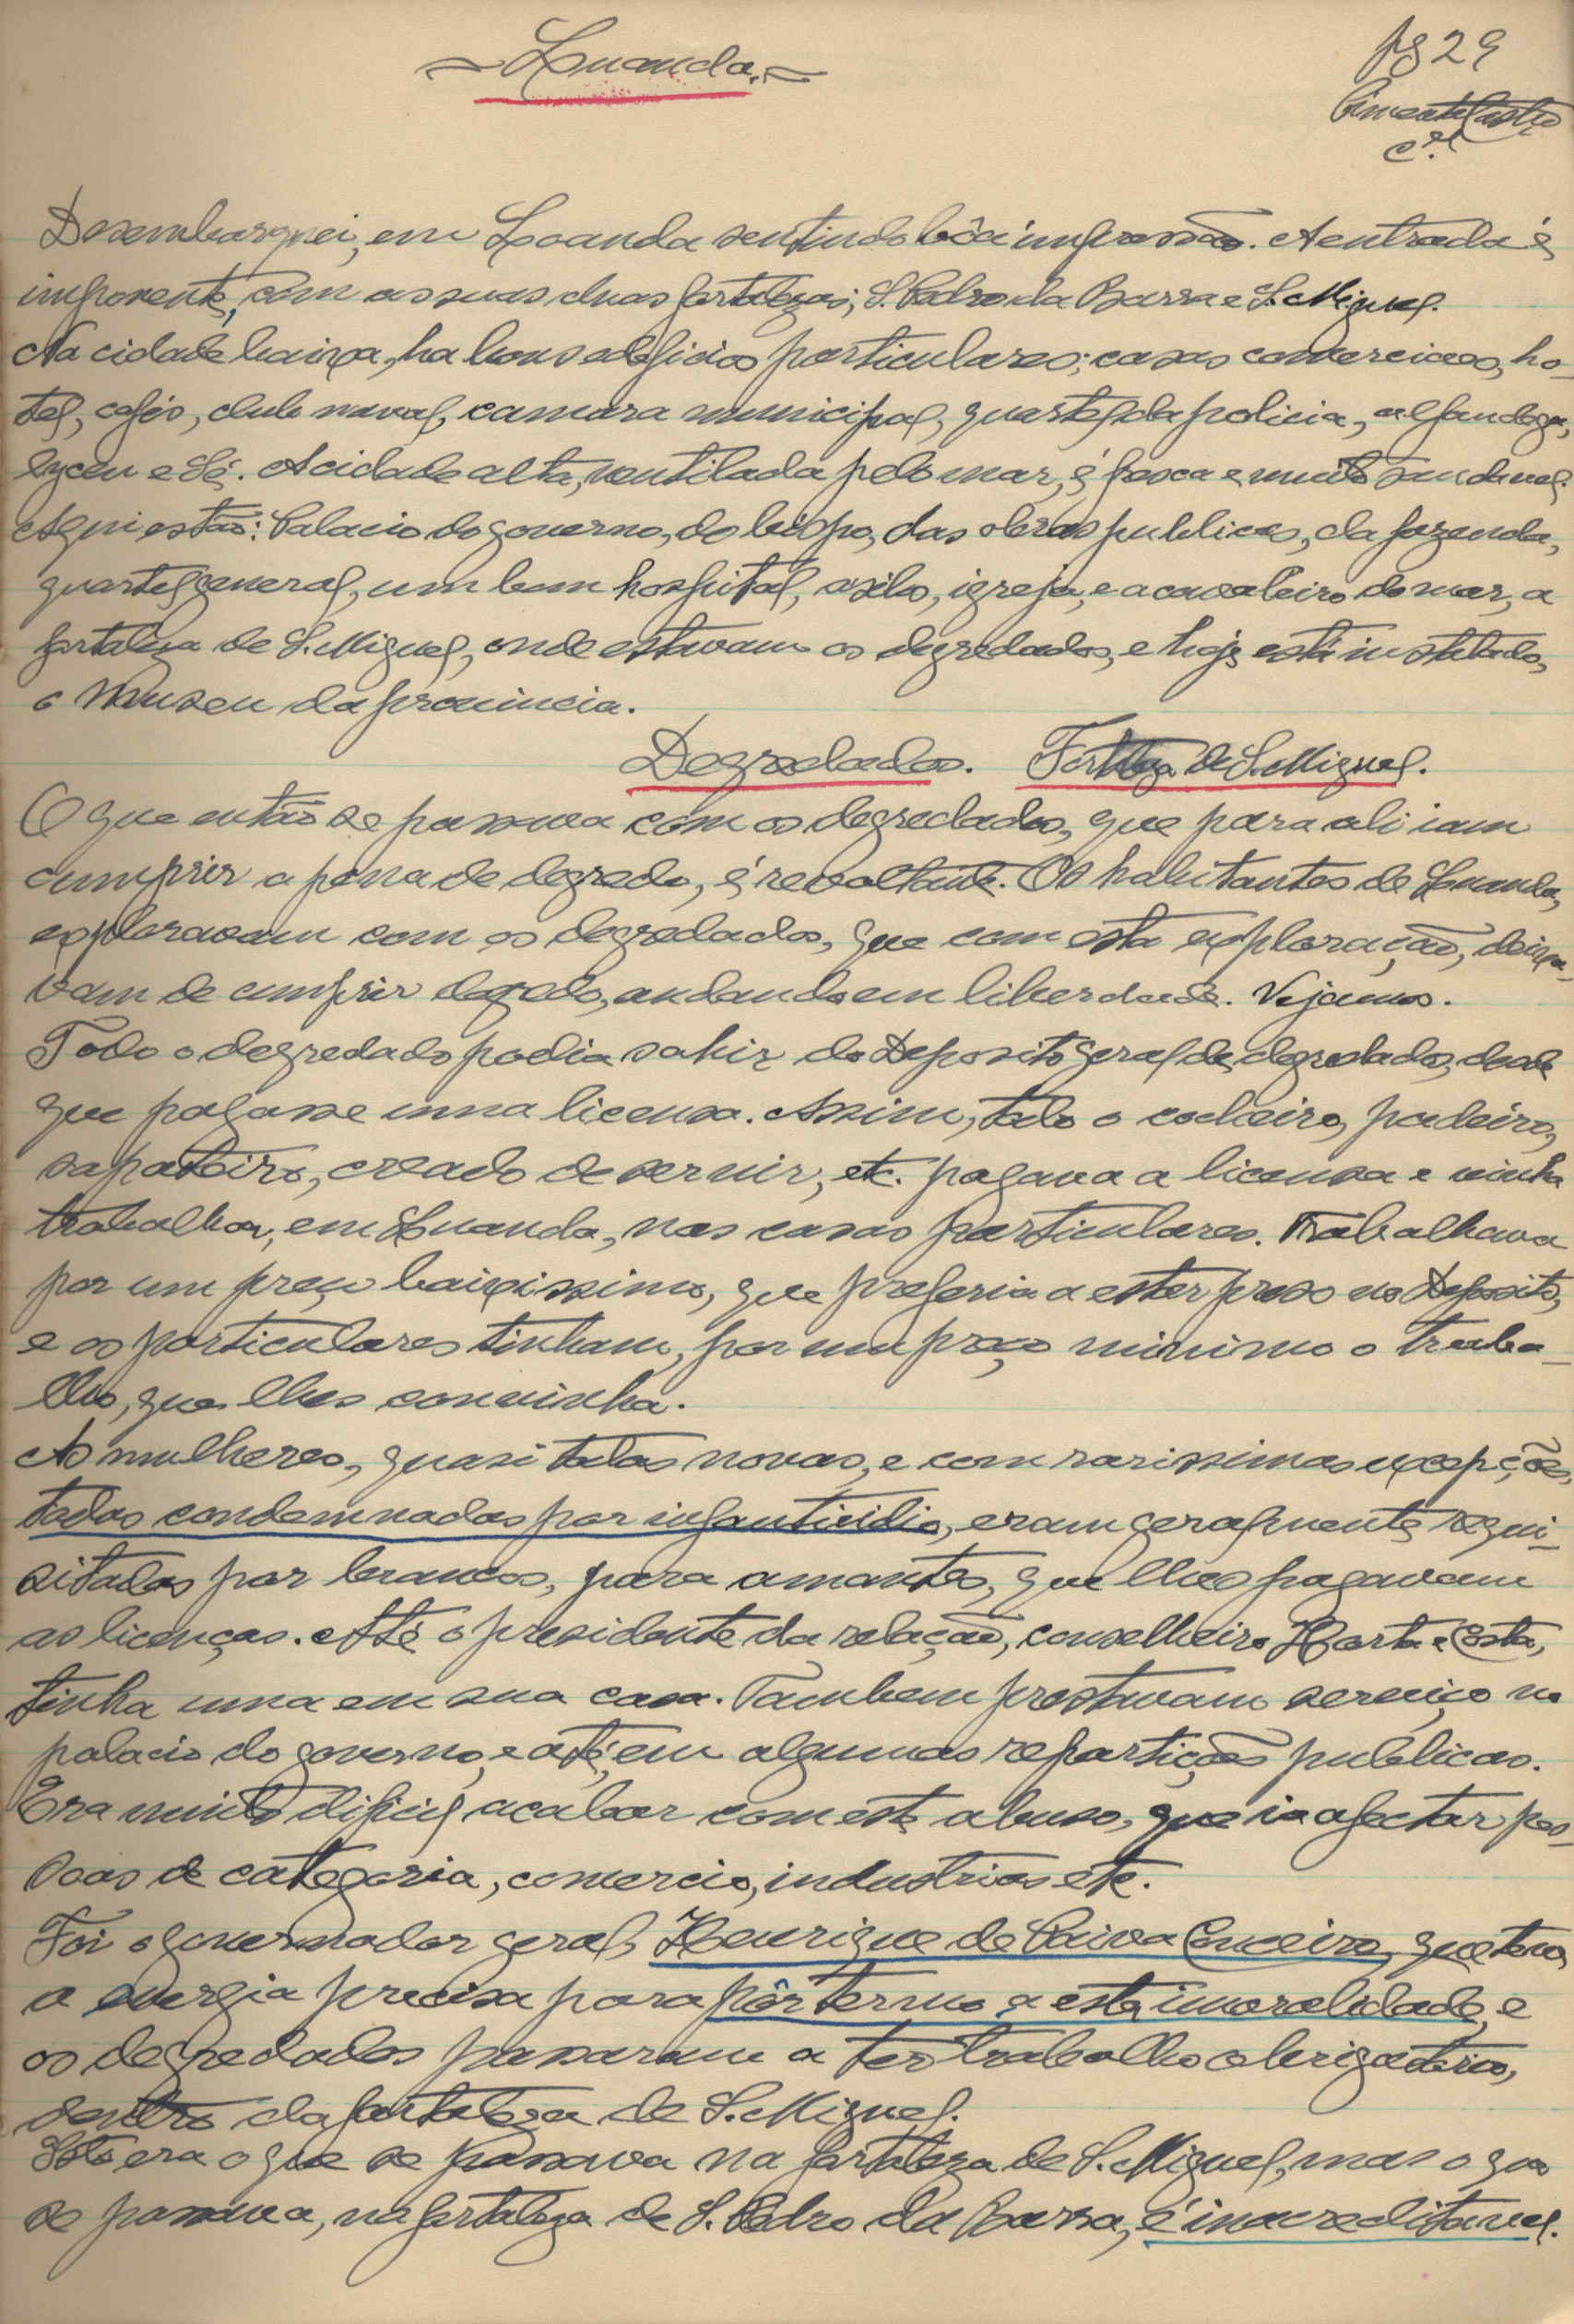 Luanda.
fg 29
Pimentel Castro
c.el
Desembarquei, em Loanda sentindo bôa impressão. A entrada é
imponente, com as suas duas fortalezas; S. Pedro da Barra e S. Miguel.
Na cidade baixa, ha bons edeficios particulares; casas comerciaes, ho-
tel, cafés, club naval, camara municipal, quartel da policia, alfandega,
lyceu e Sé. A cidade alta, ventilada pelo mar, é fresca e muito saudavel.
Aqui estão: Palacio do governo, do bispo, das obras publicas, da fazenda,
quartel general, um bom hospital, asilo, igreja, e a cavaleiro do mar, a
fortaleza de S. Miguel, onde estavam os degredados, e hoje está instalado,
o Museu da provincia.
Degredados. Fortaleza de S. Miguel.
O que então se passava com os degredados, que para ali iam
cumprir a pena de degredo, é revoltante. Os habitantes de Luanda,
exploravam com os degredados, que com esta exploração, deixa-
vam de cumprir degredo, andando em liberdade. Vejamos.
Todo o degredado podia sahir do Deposito geral de degredados, desde
que pagasse uma licensa. Assim, todo o cocheiro, padeiro,
sapateiro, creado de servir, etc. pagava a licensa e vinha
trabalhar, em Luanda, nas casas particulares. Trabalhava
por um preço baixissimo, que preferia a estar preso no Deposito,
e os particulares tinham, por um preço minimo o traba-
lho, que lhes convinha.
As mulheres, quasi todas novas, e com rarissimas excepções,
todas condemnadas por infanticidio, eram geralmente requi-
sitadas por brancos, para amantes, que lhes pagavam
as licenças. Até o presidente da relação, conselheiro Horta e Costa,
tinha uma em sua casa. Tambem prestavam serviço no
palacio do governo, e até, em algumas repartições publicas.
Era muito dificil acabar com este abuso, que ia afectar pes-
soas de categoria, comercio, industrias etc.
Foi o governador geral, Henrique de Paiva Couceiro, que teve
a energia precisa para pôr termo a esta imoralidade, e
os degredados passaram a ter trabalho obrigatorio,
dentro da fortaleza de S. Miguel.
Isto era o que se passava na fortaleza de S. Miguel, mas o que
se passava, na fortaleza de S. Pedro da Barra, é inacreditavel.